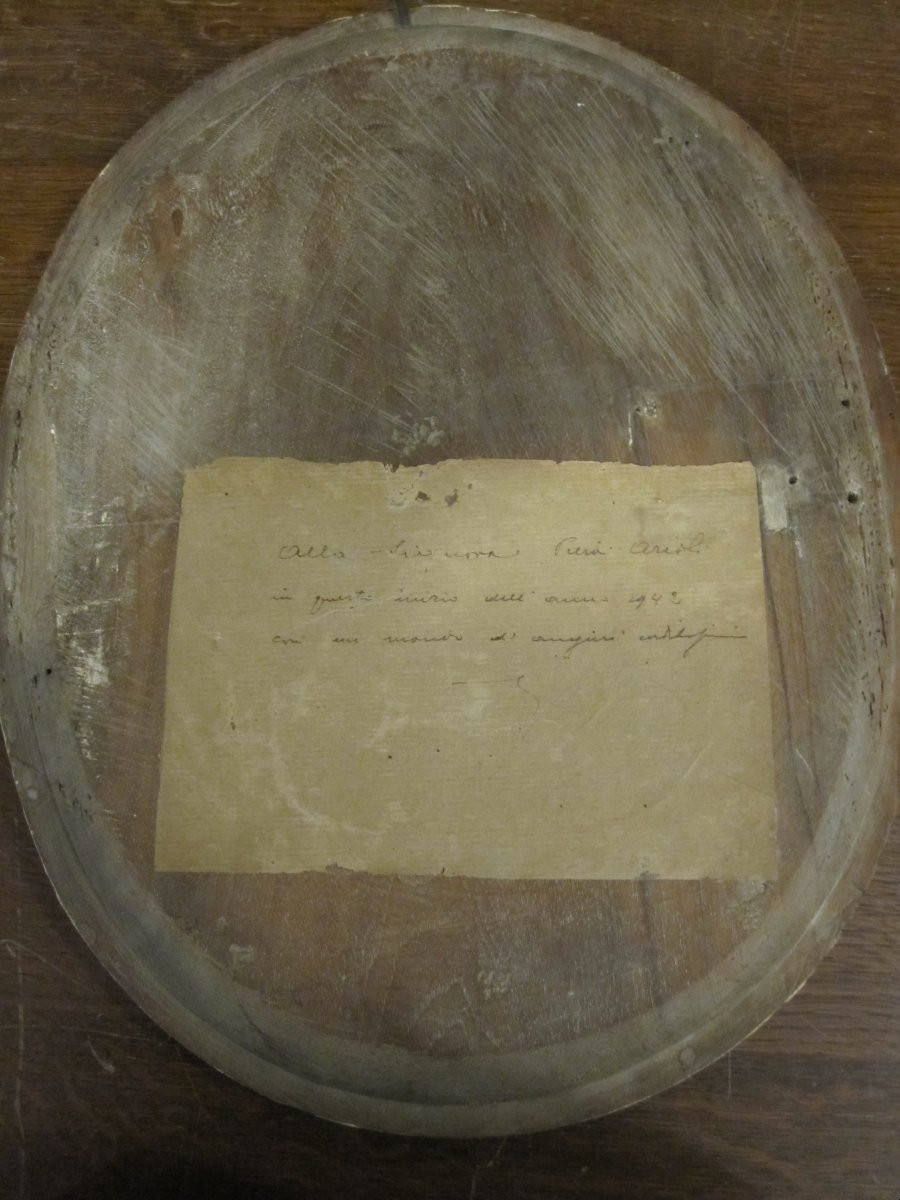 Alla Signora Piera Arioli
in questo inizio dell'anno 1942
con un mondo di auguri cordialissimi